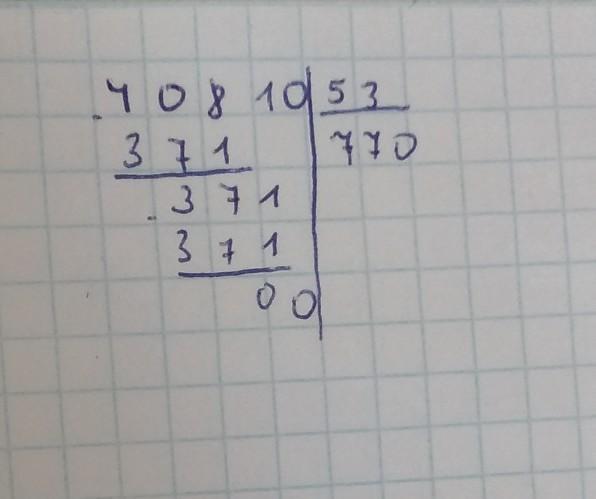 40810 53
371 770
371
371
00